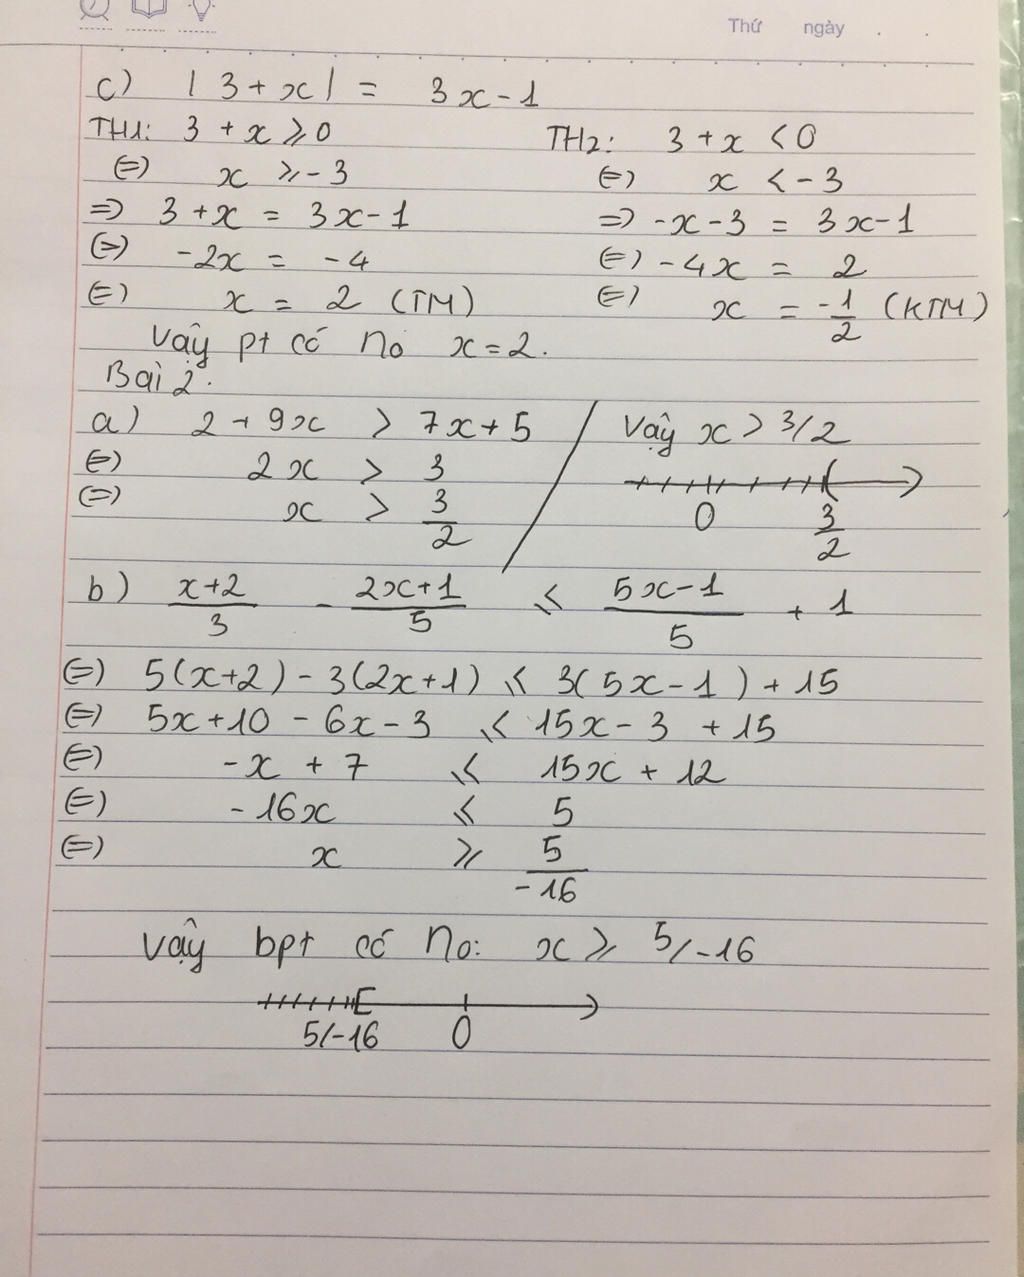 Thứ ngày . .
c) | 3 + x | = 3x - 1
TH1: 3 + x ≥ 0 TH2: 3 + x < 0
(=) x ≥ -3 (=) x < -3
=) 3 + x = 3x - 1 =) -x - 3 = 3x - 1
(=) -2x = -4 (=) -4x = 2
(=) x = 2 (TM) (=) x = -1/2 (KTM)
Vậy pt có no x = 2.
Bài 2.
a) 2 + 9x > 7x + 5 / Vậy x > 3/2
(=) 2x > 3
(=) x > 3/2
0 3/2
b) x+2/3 - 2x+1/5 ≤ 5x-1/5 + 1
(=) 5(x+2) - 3(2x+1) ≤ 3(5x-1) + 15
(=) 5x + 10 - 6x - 3 ≤ 15x - 3 + 15
(=) -x + 7 ≤ 15x + 12
(=) -16x ≤ 5
(=) x ≥ 5/-16
Vậy bpt có no: x ≥ 5/-16
5/-16 0